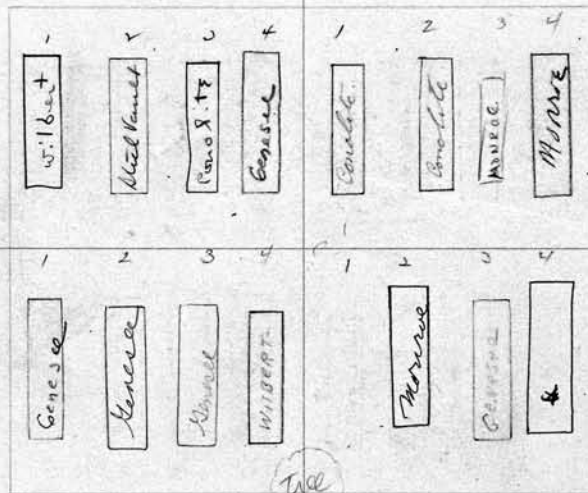 1 2 3 4
Wilbert
Steel Vault
Conolite
Genesee
1 2 3 4
Conolite
Conolite
MONROE
Monroe
1 2 3 4
Genesee
Genesee
Genesee
WILBERT
1 2 3 4
Monroe
Genesee
Tree